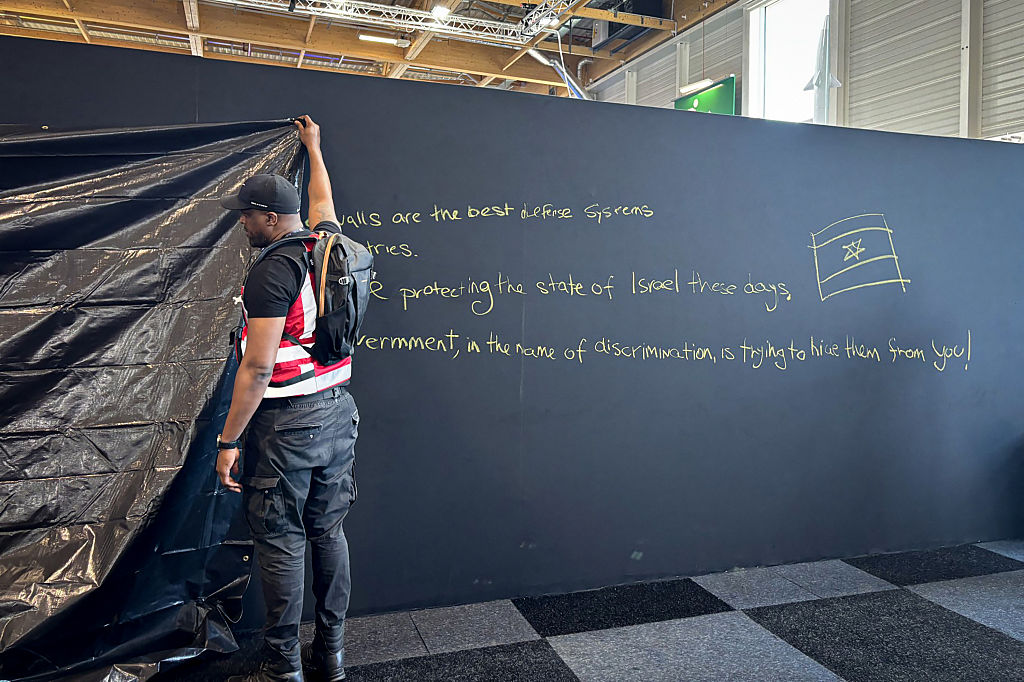 walls are the best defense systems
tries.
e protecting the state of Israel these days,
vernment, in the name of discrimination, is trying to hide them from you!